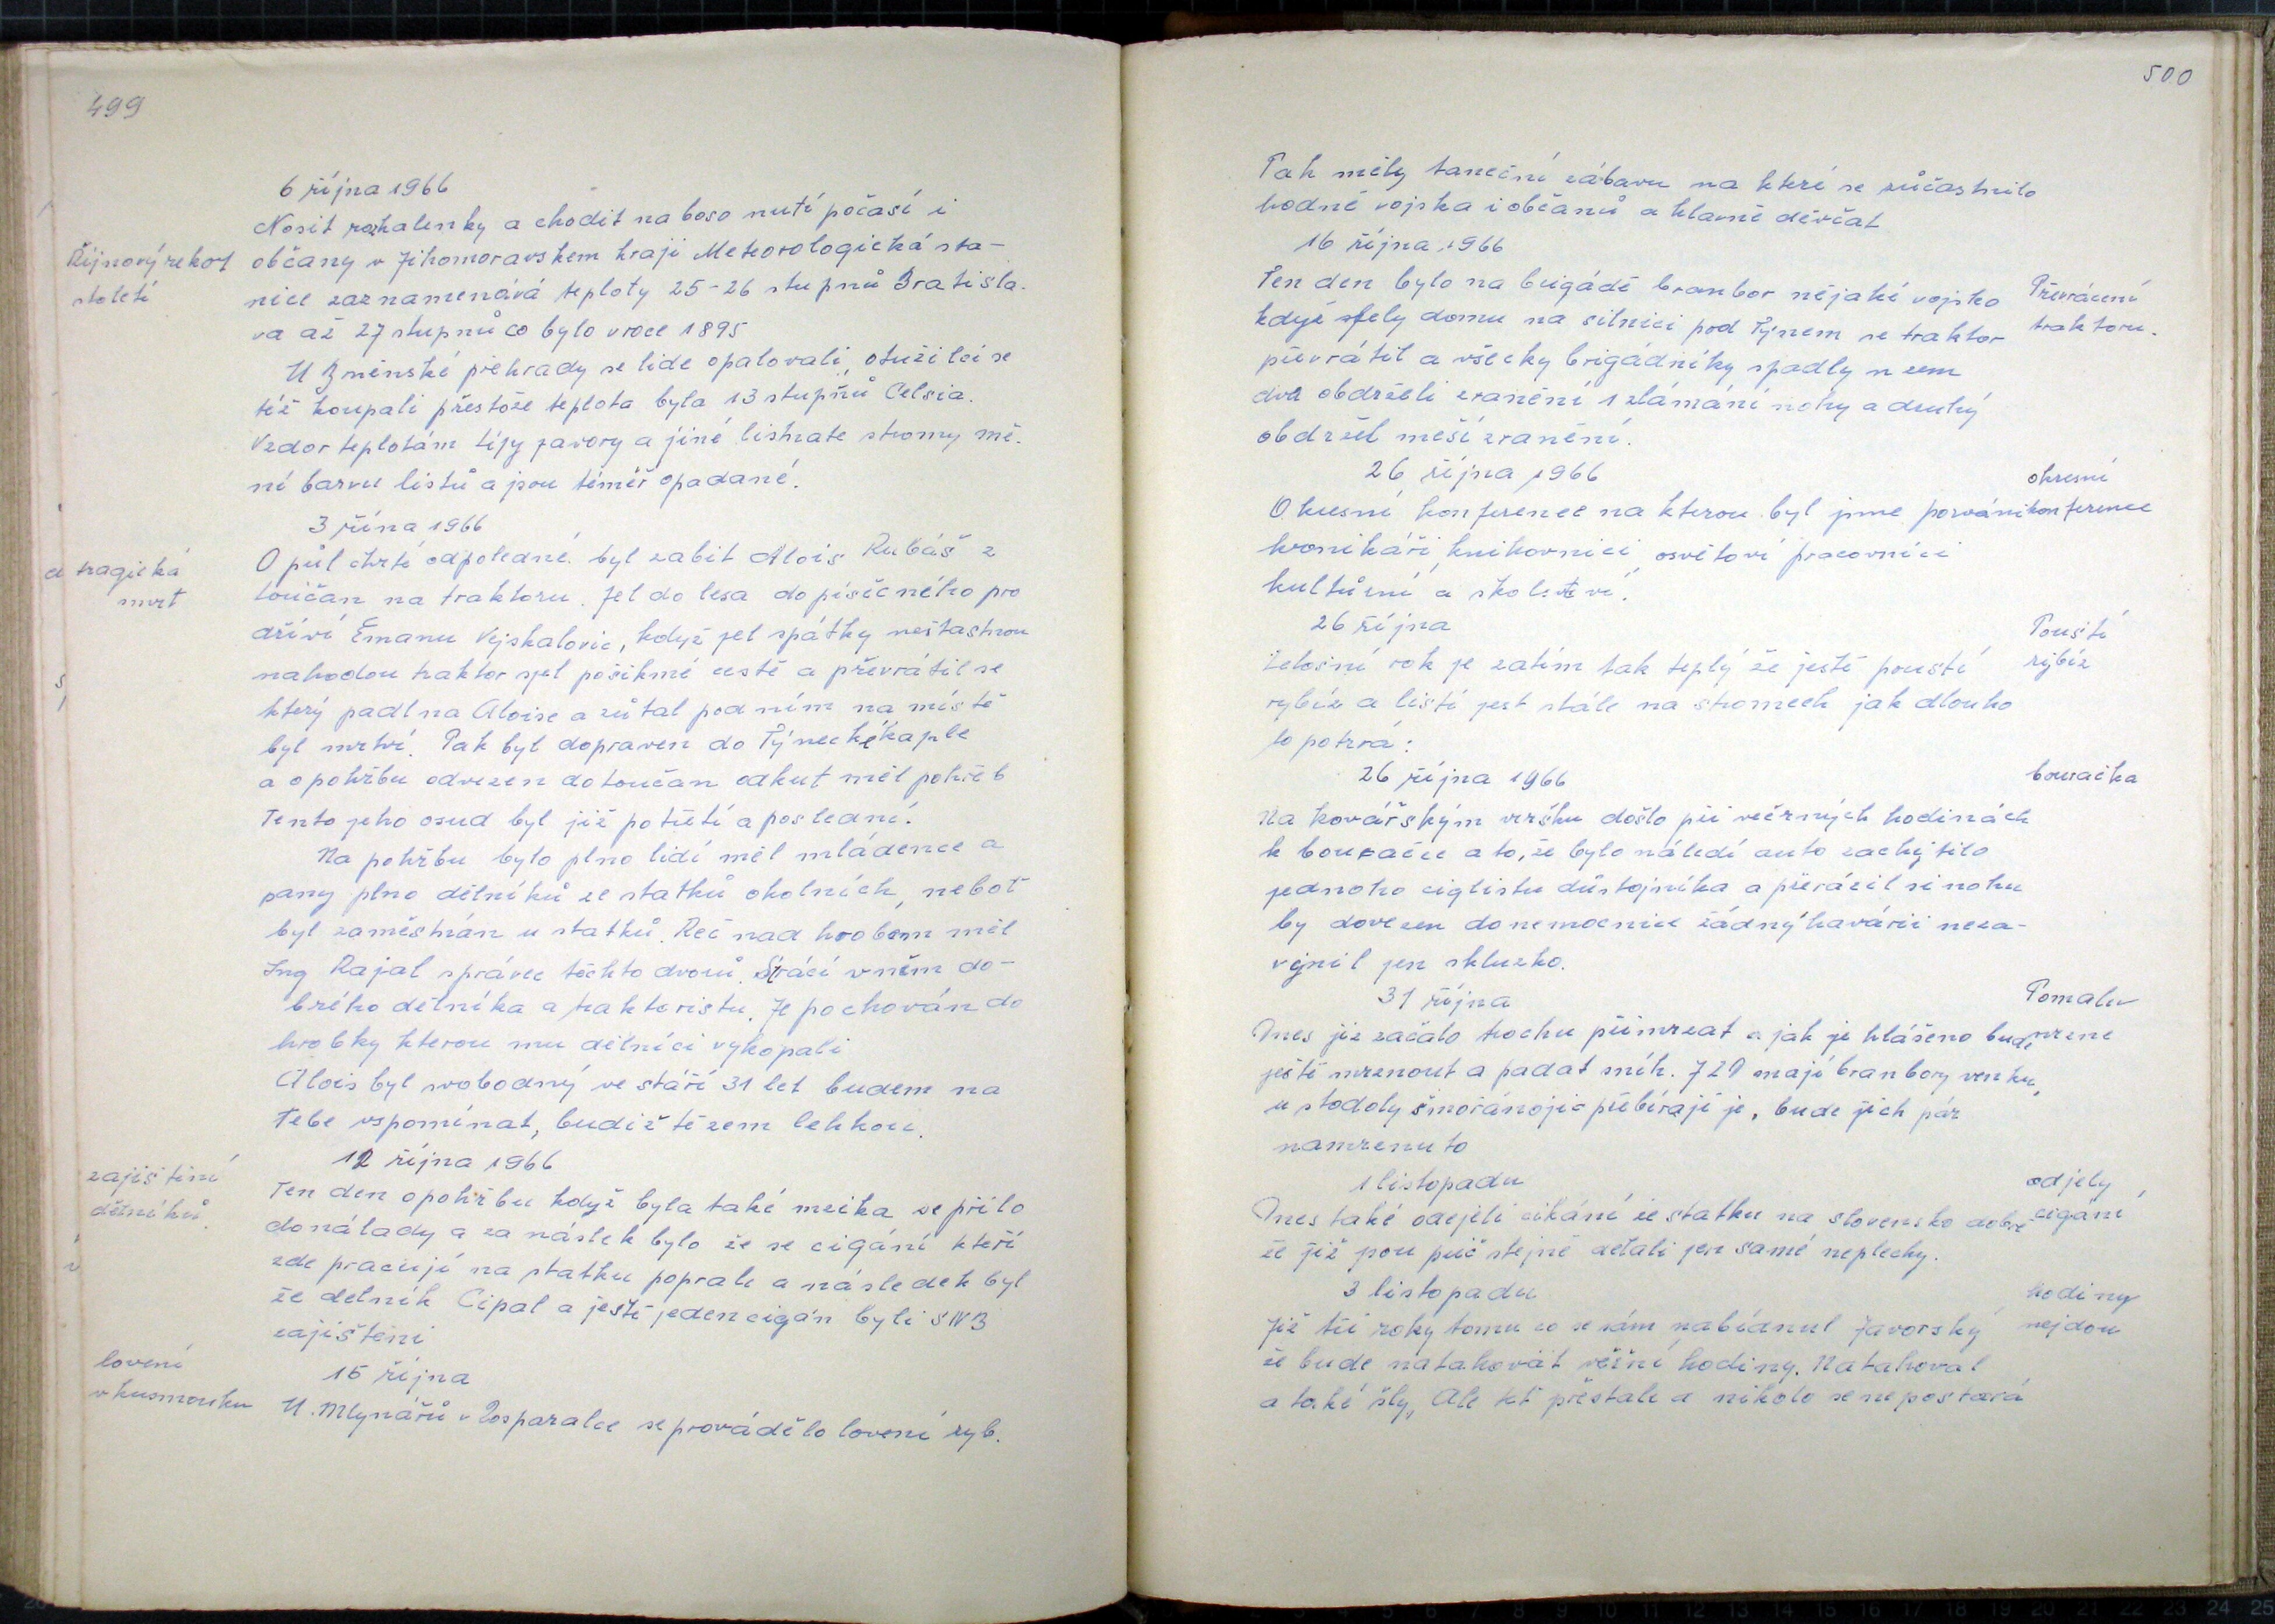 499
6 října 1966
Nosit rozhalenky a chodit na boso nutí počasí i
Říjnový rekot
století
občany v Jihomoravskem kraji Meteorologická sta-
nice zaznamenává teploty 25-26 stupnů Bratisla-
va až 27 stupnů co bylo v roce 1895
U Brněnské přehrady se lide opalovali, otužilci se
též koupali přestože teplota byla 13 stupňů Celsia.
Vzdor teplotám lípy javory a jiné listnate stromy mě-
ní barvu listů a jsou téměř opadané.
3 řína 1966
tragická
mrt
O půl čtrté odpoledné byl zabit Alois Rubáš z
Loučan na traktoru. Jel do lesa do písečného pro
dříví Emanu Vejskalovic, když jel spátky neštastnou
nahodou traktor sjel pošikmé cestě a převrátil se
který padl na Aloise a zůtal pod ním na místě
byl mrtví. Pak byl dopraven do Týnecké kaple
a o pohřbu odvezen do Loučan odkut měl pohřeb
Tento jeho osud byl již potřetí a poslední.
Na pohřbu bylo plno lidí měl mládence a
pany plno dělníků ze statků okolních, neboť
byl zaměstnán u statků. Řeč nad hrobem měl
Ing Rajal správce těchto dvorů. Ztrácí v něm do-
brého dělníka a traktoristu. Je pochován do
hrobky kterou mu dělníci vykopali
Alois byl svobodný ve stáří 31 let budem na
Tebe vspomínat, budiž tě zem lehkou.
12 října 1966
zajištění
dělníků.
Ten den o pohřbu když byla také mzika se přilo
do nálady a za náslek bylo že se cigání kteří
zde pracují na statku poprali a následek byl
že delník Cipal a ještě jeden cigán byli SNB
zajištěni
15 října
lovení
v kusmouku
U. Mlynářů v Rosparalce se provádělo lovení ryb.
500
Pak měly taneční zábavu na které se zůčastnilo
hodně vojska i občanů a hlavně děvčat
16 října 1966
Ten den bylo na brigádě brambor nějaké vojsko
Převrácení
traktoru.
když jely domu na silnici pod Týnem se traktor
převrátil a všecky brigádníky spadly n zem
dva obdrželi zranění 1 zlámání nohy a druhý
obdržel meší zranění.
26 října 1966
okresní
konference
Okresní konference na kterou byl jsme pozváni
kronikáři, knihovnici, osvětoví pracovníci
kultůrní a školství.
26 října
Pouští
rybíz
Letošní rok je zatím tak teplý že ještě pouští
rybíz a listí jest stále na stromech jak dlouho
to potrvá:
26 října 1966
bouračka
Na kovářským veršku došlo při večerných hodinách
k bouračce a to, že bylo náledí auto zachytilo
jednoho ciglistu důstojníka a přerázil si nohu
by dovezen do nemocnice žádný havárii neza-
vinil jen skluzko.
31 října
Pomalu
mrzne
Dnes již začalo trochu přimrzat a jak je hlášeno bude
ještě mrznout a padat sníh. JZD mají brambory venku,
u stodoly šmořánojic přebírají je, bude jich pár
namrznuto
1 listopadu
odjely
cigání
Dnes také odejeli cikání ze statku na slovensko dobře
že již jsou pryč stejně dělali jen samé neplechy.
3 listopadu
hodiny
nejdou
Již tři roky tomu co se nám nabídnul Javorský
že bude natahovát věžní hodiny. Natahoval
a také šly, Ale teť přestali a nikoto se nepostará